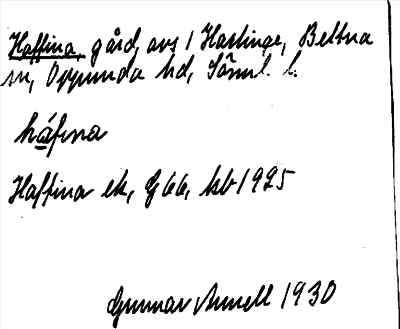 Haffina, gård, avs. / Hartinge, Bettna
sn, Oppunda hd, Söml. l.
háfına
Haffina ek, G 66, kb 1925
Gunnar Annell 1930